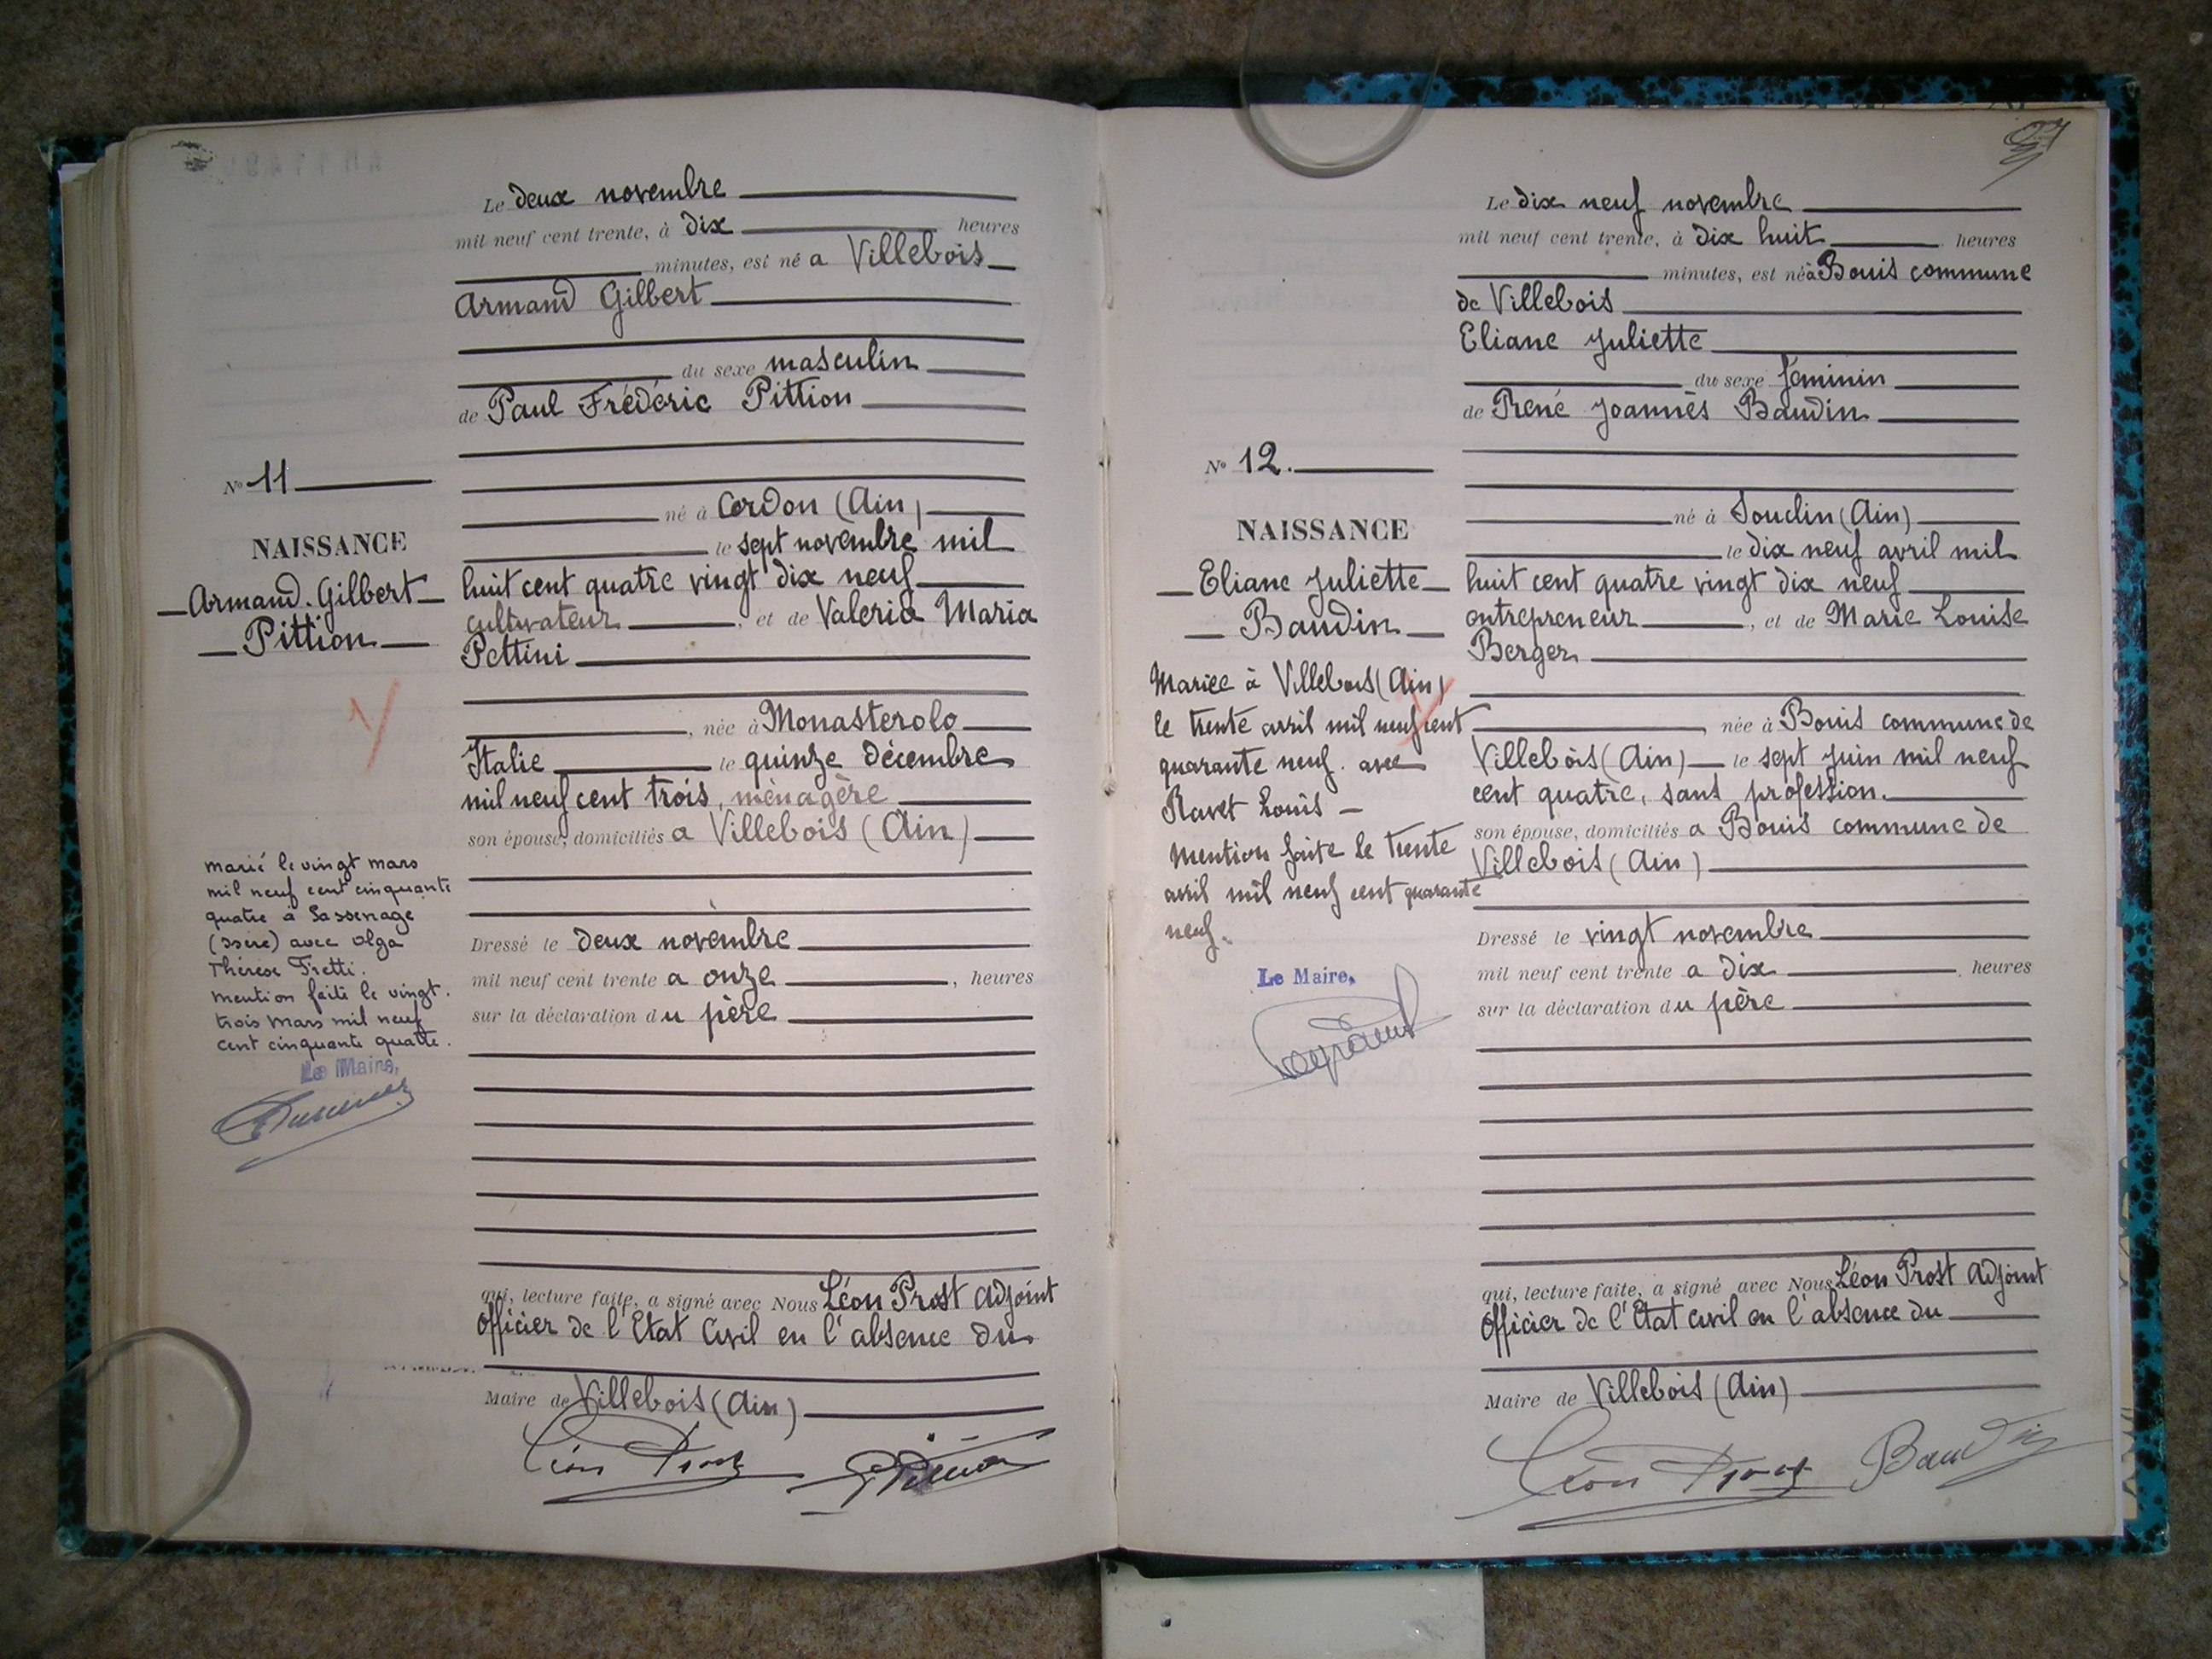 Le deux novembre
mil neuf cent trente, à dix heures
minutes, est né a Villebois
Armand Gilbert
du sexe masculin
de Paul Frédéric Pittion
né à Cordon (Ain)
le sept novembre mil
huit cent quatre vingt dix neuf
cultivateur, et de Valeria Maria
Pettini
, née à Monasterolo
Italie le quinze décembre
mil neuf cent trois, ménagère
son épouse, domiciliés a Villebois (Ain)
Dressé le deux novembre
mil neuf cent trente a onze, heures
sur la déclaration du père
qui, lecture faite, a signé avec Nous Léon Prost adjoint
officier de l'Etat Civil en l'absence du
Maire de Villebois (Ain)
Léon Prost
N° 11
NAISSANCE
Armand. Gilbert
Pittion
marié le vingt mars
mil neuf cent cinquante
quatre à Sassenage
(Isère) avec Olga
Thérèse Fretti.
mention faite le vingt.
trois mars mil neuf
cent cinquante quatre.
Le Maire,
Le dix neuf novembre
mil neuf cent trente, à dix huit heures
minutes, est né à Bouis commune
de Villebois
Eliane Juliette
du sexe féminin
de René Joannès Baudin
né à Souclin (Ain)
le dix neuf avril mil
huit cent quatre vingt dix neuf
entrepreneur, et de Marie Louise
Berger
née à Bouis commune de
Villebois (Ain) le sept juin mil neuf
cent quatre, sans profession.
son épouse, domiciliés a Bouis commune de
Villebois (Ain)
Dressé le vingt novembre
mil neuf cent trente a dix heures
sur la déclaration du père
qui, lecture faite, a signé avec Nous Léon Prost adjoint
officier de l'Etat civil en l'absence du
Maire de Villebois (Ain)
Léon Prost Baudin
N° 12.
NAISSANCE
Eliane Juliette
Baudin
Mariée à Villebois (Ain)
le trente avril mil neuf cent
quarante neuf. avec
Ravet Louis
Mention faite le trente
avril mil neuf cent quarante
neuf.
Le Maire,